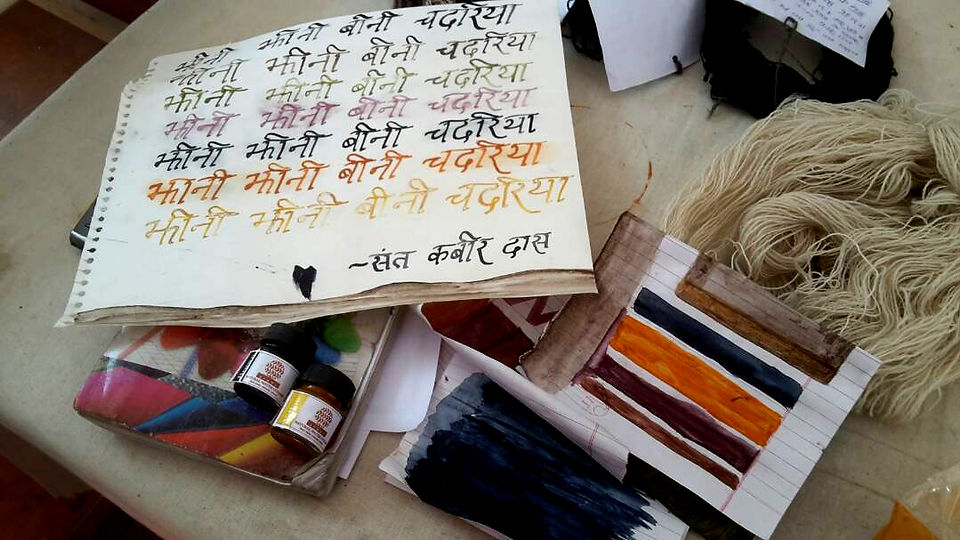 झीनी झीनी बीनी चदरिया
झीनी झीनी बीनी चदरिया
झीनी झीनी बीनी चदरिया
झीनी झीनी बीनी चदरिया
झीनी झीनी बीनी चदरिया
झीनी झीनी बीनी चदरिया
झीनी झीनी बीनी चदरिया
~संत कबीर दास